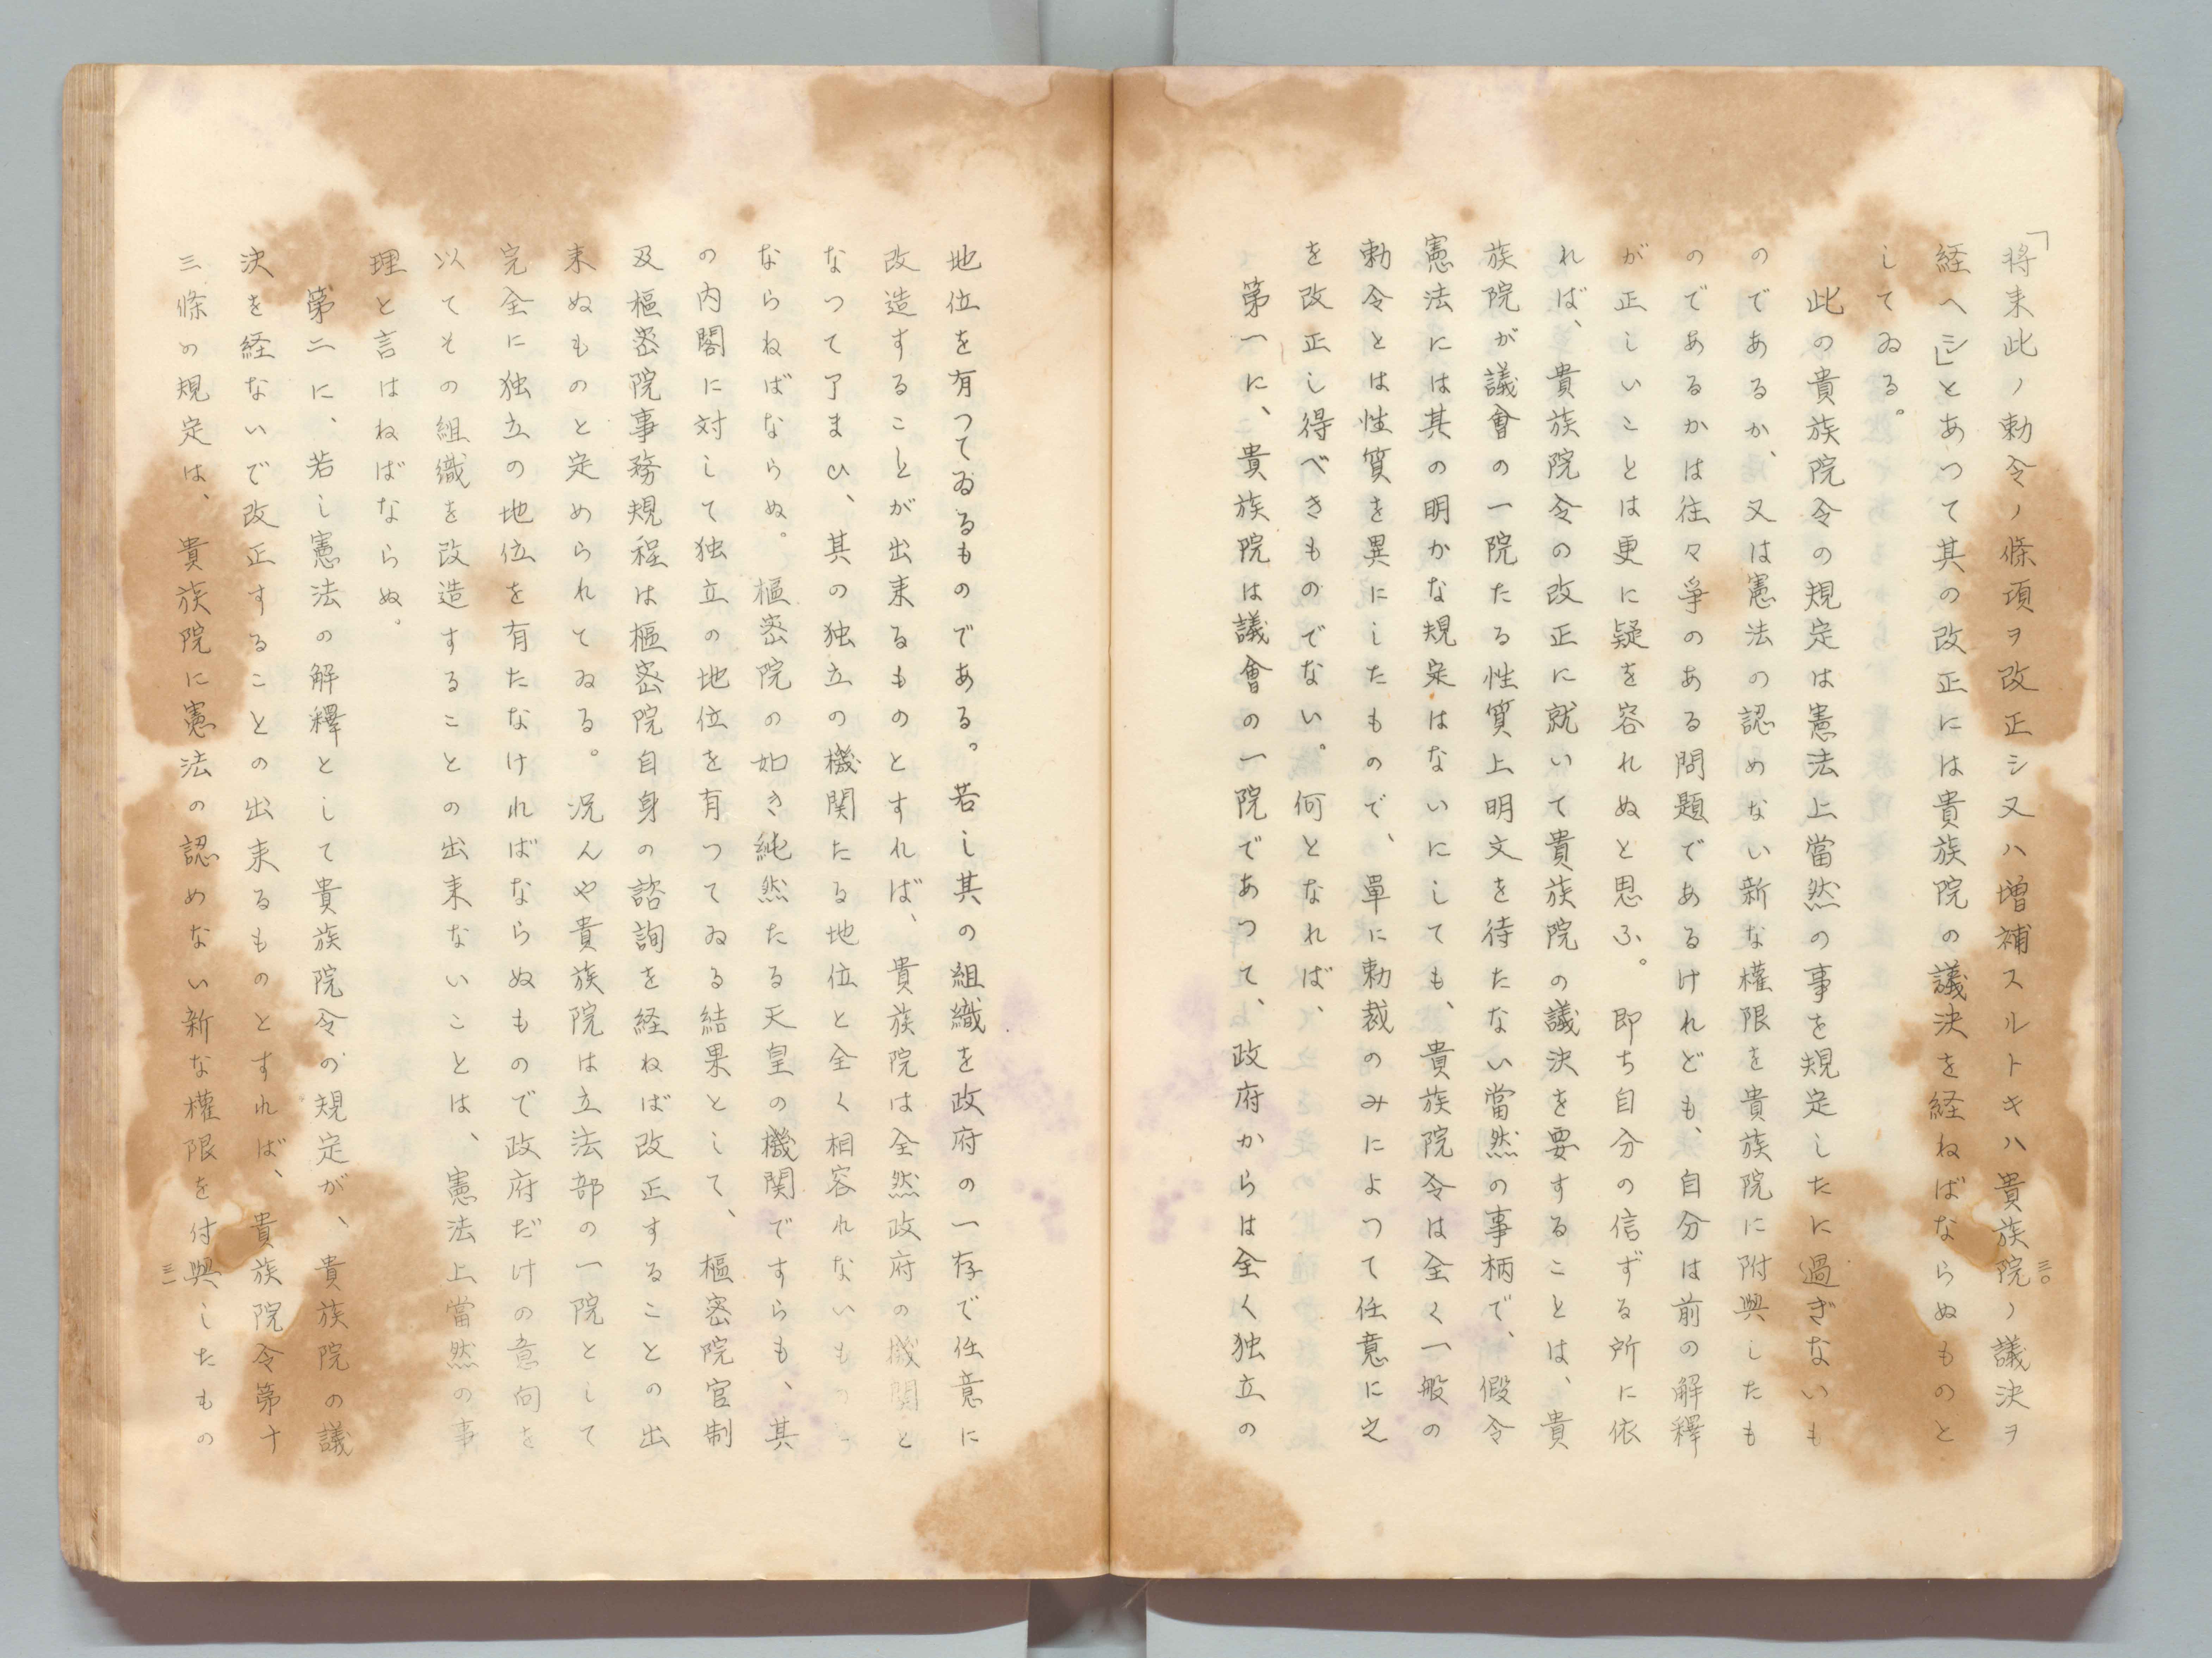 「將来此ノ勅令ノ條項ヲ改正シ又ハ増補スルトキハ貴族院ノ議決ヲ
経ヘシ」とあつて其の改正には貴族院の議決を経ねばならぬものと
してゐる。
此の貴族院令の規定は憲法上當然の事を規定したに過ぎないも
のであるか、又は憲法の認めない新な權限を貴族院に附與したも
のであるかは往々爭のある問題であるけれども、自分は前の解釋
が正しいことは更に疑を容れぬと思ふ。即ち自分の信ずる所に依
れば、貴族院令の改正に就いて貴族院の議決を要することは、貴
族院が議會の一院たる性質上明文を待たない當然の事柄で、假令
憲法には其の明かな規定はないにしても、貴族院令は全く一般の
勅令とは性質を異にしたもので、單に勅裁のみによつて任意に之
を改正し得べきものでない。何となれば、
第一に、貴族院は議會の一院であつて、政府からは全く独立の
三〇
地位を有つてゐるものである。若し其の組織を政府の一存で任意に
改造することが出来るものとすれば、貴族院は全然政府の機関と
なつて了まひ、其の独立の機関たる地位と全く相容れないもの
ならねばならぬ。樞密院の如き純然たる天皇の機関ですらも、其
の内閣に対して独立の地位を有つてゐる結果として、樞密院官制
及樞密院事務規程は樞密院自身の諮詢を経ねば改正することの出
来ぬものと定められてゐる。况んや貴族院は立法部の一院として
完全に独立の地位を有たなければならぬもので政府だけの意向を
以てその組織を改造することの出来ないことは、憲法上當然の事
理と言はねばならぬ。
第二に、若し憲法の解釋として貴族院令の規定が、貴族院の議
決を経ないで改正することの出来るものとすれば、貴族院令第十
三條の規定は、貴族院に憲法の認めない新な權限を付與したもの
三一